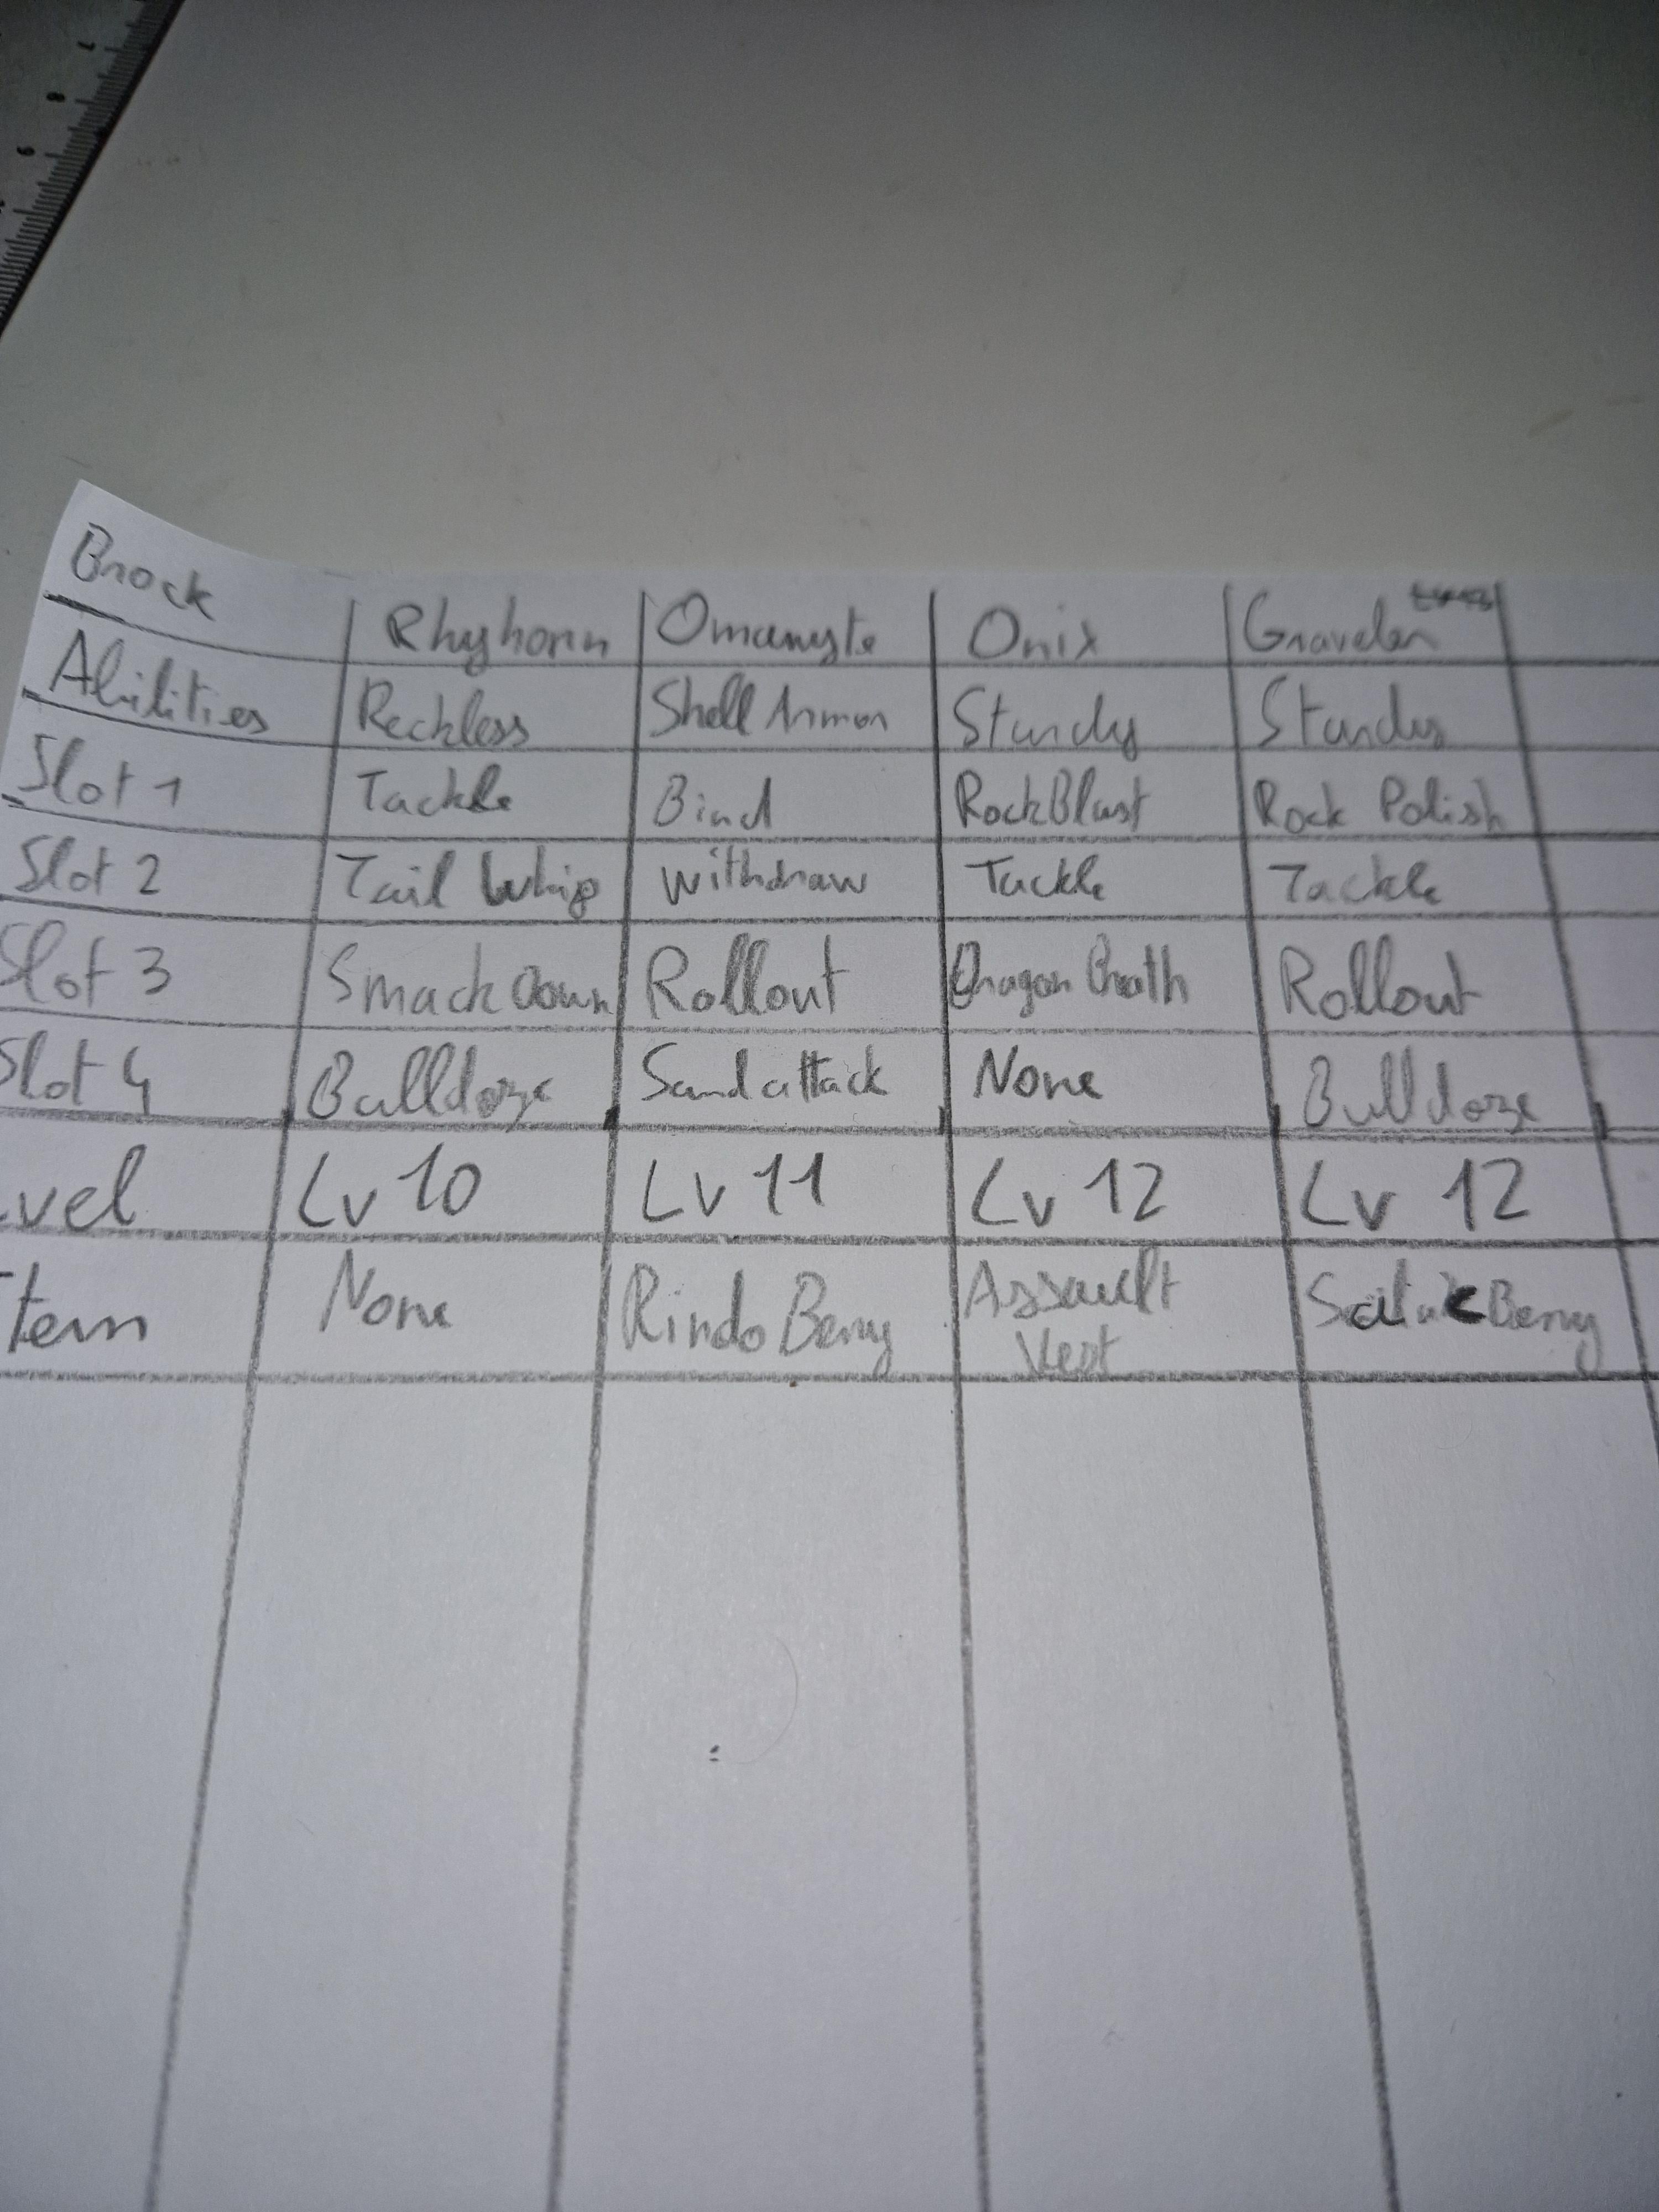 Brock Rhyhorn Omanyte Onix Graveler
Abilities Reckless Shell Armor Sturdy Sturdy
Slot 1 Tackle Bind Rock Blast Rock Polish
Slot 2 Tail Whip Withdraw Tackle Tackle
Slot 3 Smack Down Rollout Dragon Breath Rollout
Slot 4 Bulldoze Sand attack None Bulldoze
vel Lv 10 Lv 11 Lv 12 Lv 12
Item None Rindo Berry Assault Vest Berry
7
8
9